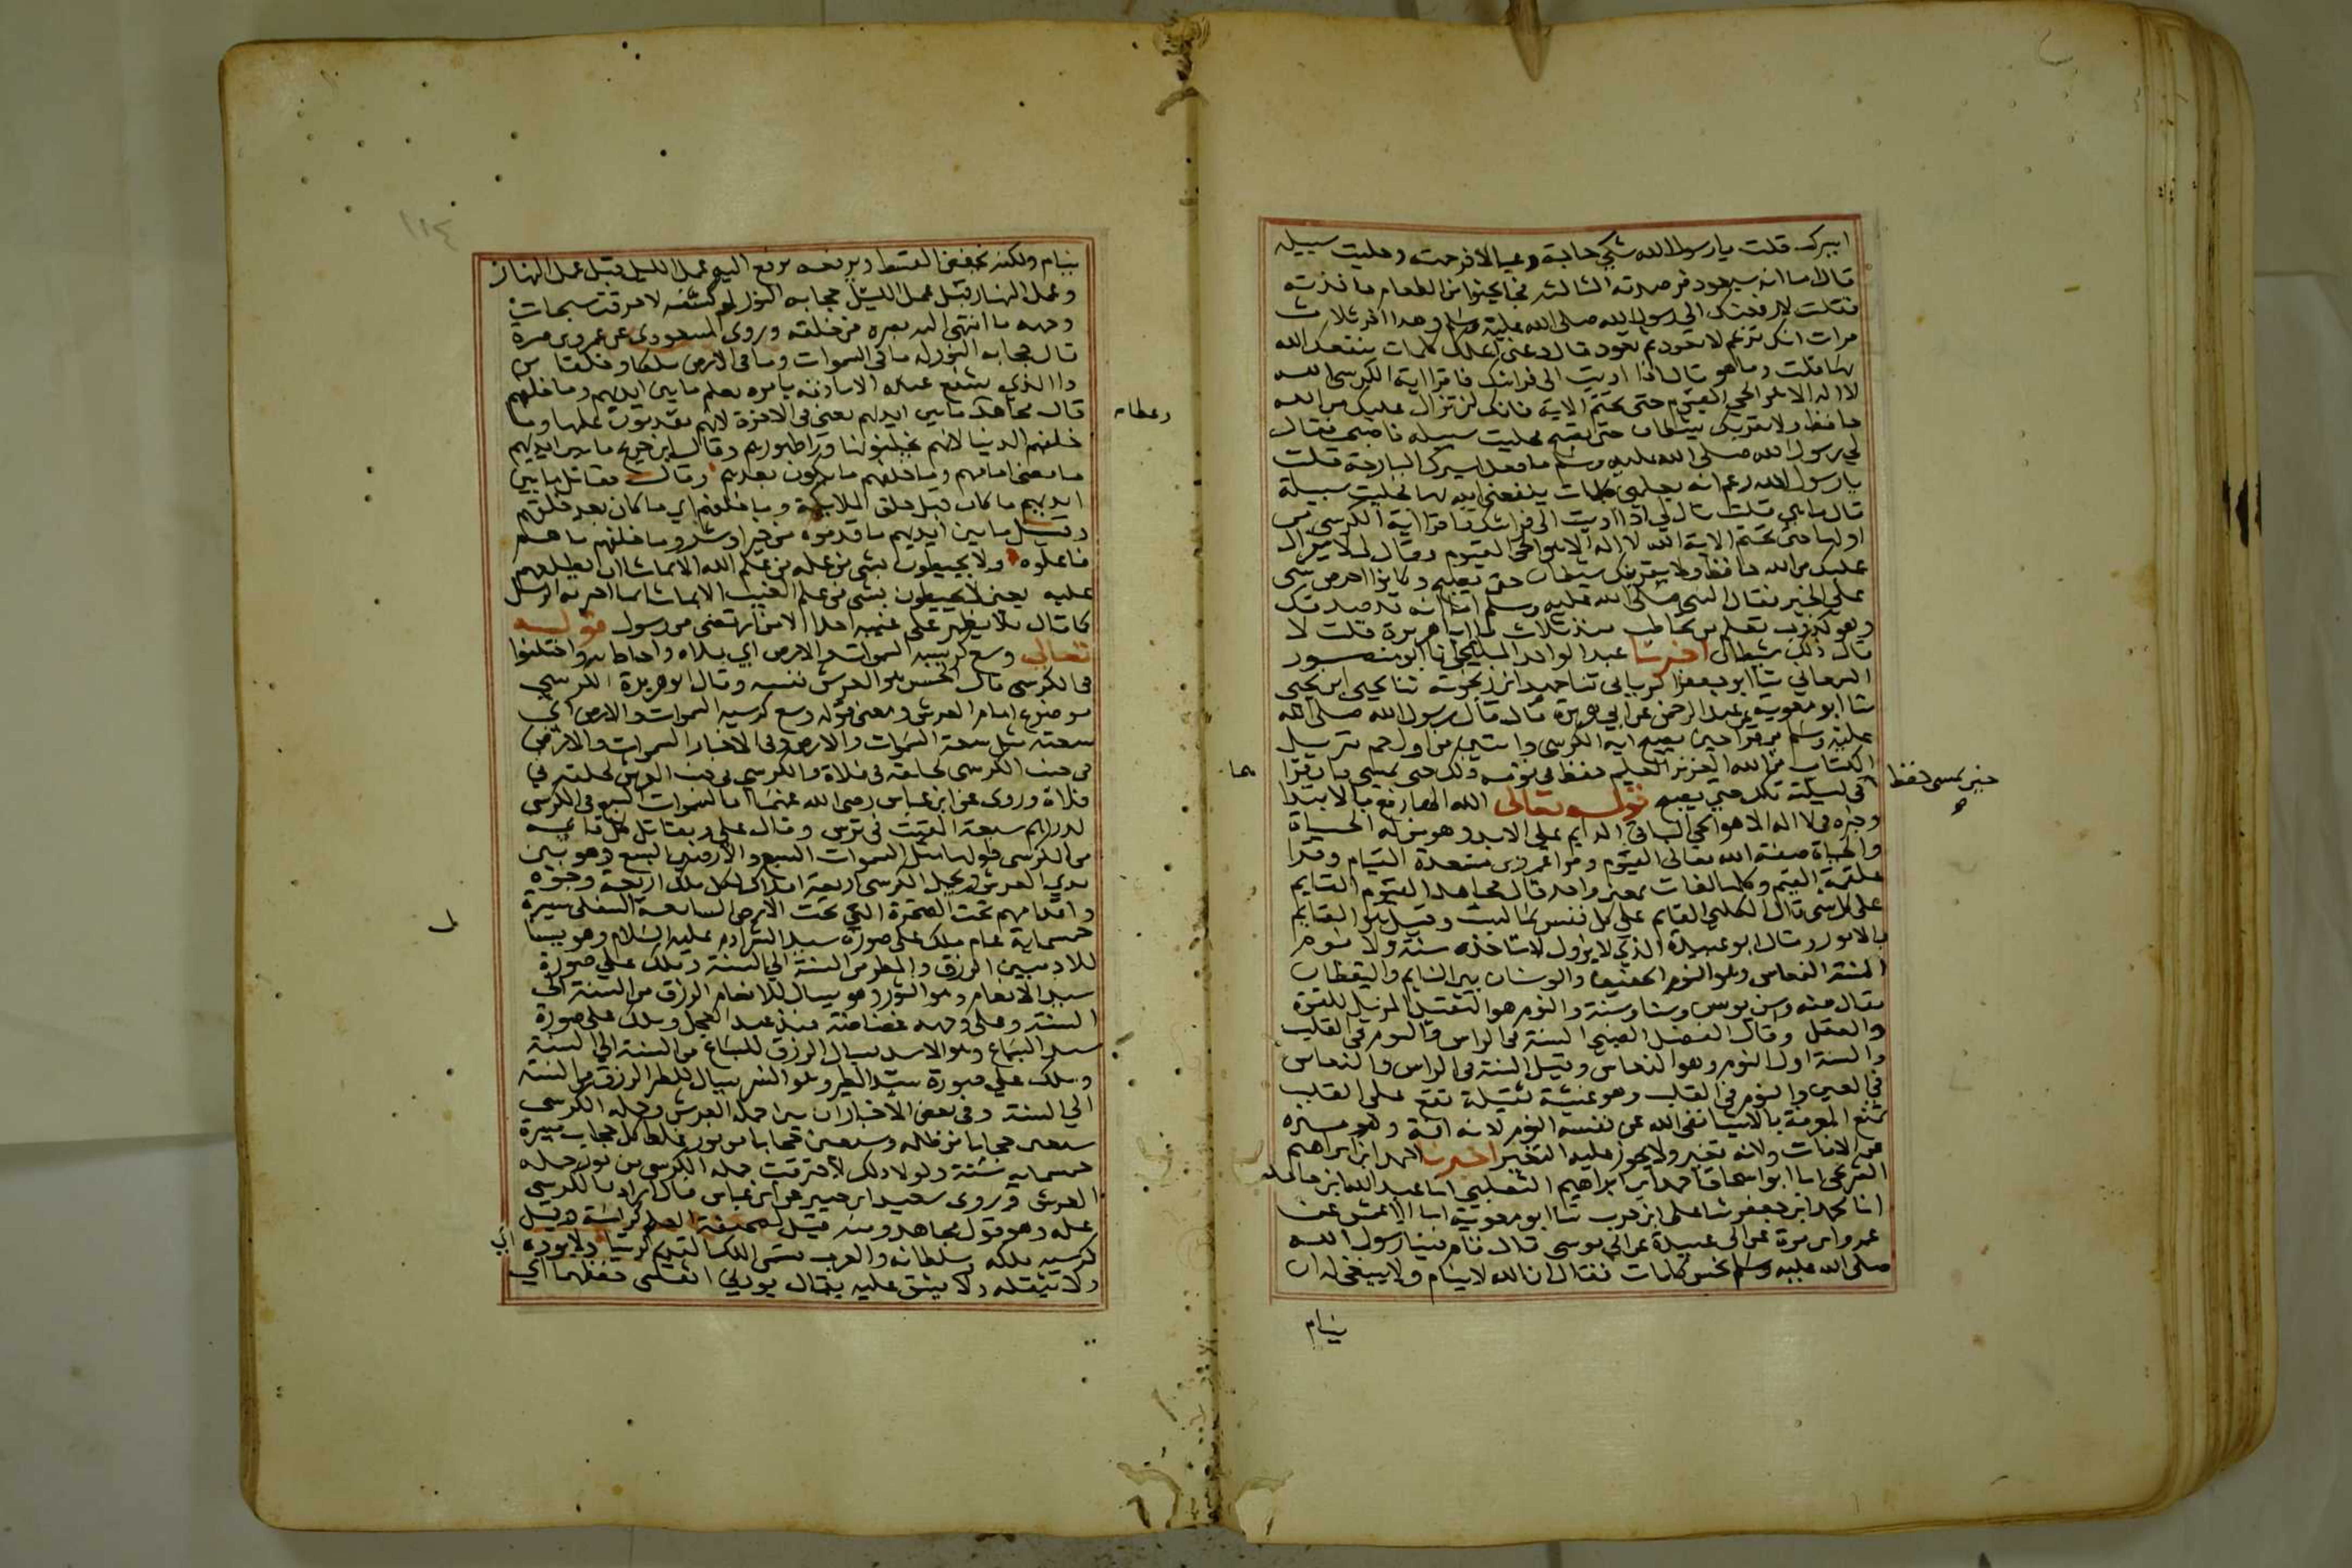 اسيرك قلت يا رسول الله شكى حاجة وعيالا فرحمته وخليت سبيله
قال اما انه سيعود فرصدته الثالثة فجا يحثوا من الطعام فاخذته
فقلت لارفعنك الى رسول الله صلى الله عليه وسلم وهذا اخر ثلاث
مرات انك تزعم لا تعود ثم تعود قال دعني اعلمك كلمات ينفعك الله
بها قلت وما هو قال اذا اويت الى فراشك فاقرا اية الكرسى الله
لا اله الا هو الحي القيوم حتى تختم الاية فانك لن تزال عليك من الله
حافظ ولا يقربك شيطان حتى تصبح فخليت سبيله فاصبحت فقال
لي رسول الله صلى الله عليه وسلم ما فعل اسيرك البارحة قلت
يا رسول الله زعم انه يعلمني كلمات ينفعني الله بها فخليت سبيله
قال ما هي قلت قال لي اذا اويت الى فراشك فاقرا اية الكرسى من
اولها حتى تختم الاية الله لا اله الا هو الحي القيوم وقال لي لا يزال
عليك من الله حافظ ولا يقربك شيطان حتى تصبح وكانوا احرص شى
على الخير فقال النبي صلى الله عليه وسلم اما انه قد صدقك
وهو كذوب تعلم من تخاطب منذ ثلاث يا ابا هريرة قلت لا
قال ذلك شيطان اخبرنا عبد الواحد المليحي انا ابو منصور
السمعاني ثنا ابو جعفر الرياني ثنا حميد ابن زنجويه ثنا يحيى ابن يحيى
ثنا ابو معوية عن عبد الرحمن عن ابي هريرة قال قال رسول الله صلى الله
عليه وسلم من قرا حين يصبح اية الكرسى وايتين من اول حم تنزيل
الكتاب من الله العزيز العليم حفظ في يومه ذلك حتى يمسي فان قرا
حين يمسى حفظ
هما
في ليلته تلك حتي يصبح قوله تعالى الله الها رفع بالابتدا
وخبره في لا اله الا هو الحي الباقي الدايم علي الابد وهو من له الحياة
والحياة صفة الله تعالى القيوم وقرا عمر وبن مسعدة القيام وقرا
علقمة القيم وكلها لغات بمعنى واحد قال مجاهد القيوم القايم
على كل شى قال الكلبي القايم على كل نفس بما كسبت وقيل هو القايم
بالامور وقال ابو عبيدة الذي لا يزول لا تاخذه سنة ولا نوم
السنة النعاس وهو النوم الخفيف والوسنان بين النايم واليقظان
يقال منه وسن يوسن وسنا وسنة والنوم هو الثقيل المزيل للقوة
والعقل وقال المفضل الضبي السنة في الراس والنوم في القلب
والسنة اول النوم وهو النعاس وقيل السنة في الراس والنعاس
في العين والنوم في القلب وهو غشية ثقيلة تقع على القلب
تمنع المعرفة بالاشيا نفى الله عن نفسه النوم لانه افة وهو منزه
عن الافات ولانه تغير ولا يجوز عليه التغير اخبرنا احمد ابن ابراهيم
الشريحي انا ابو اسحاق احمد ابن ابراهيم الثعلبي انا عبد الله ابن حامد
انا محمد ابن جعفر ثنا على ابن حرب ثنا ابو معوية انا الاعمش عن
عمرو ابن مرة عن ابي عبيدة عن ابي موسى قال قام فينا رسول الله
صلى الله عليه وسلم بخمس كلمات فقال ان الله لا ينام ولا ينبغي له ان
ينام
١١٤
ينام ولكنه يخفض القسط ويرفعه يرفع اليه عمل الليل قبل عمل النهار
وعمل النهار قبل عمل الليل حجابه النور لو كشفه لاحرقت سبحات
وجهه ما انتهى اليه بصره من خلقه وروى المسعودي عن عمرو بن مرة
قال حجابه النور له ما في السموات وما في الارض ملكا وخلقا من
ذا الذي يشفع عنده الا باذنه بامره يعلم ما بين ايديهم وما خلفهم
قال مجاهد ما بين ايديهم يعني الاخرة لانهم يقدمون عليها وما
وعطاء
خلفهم الدنيا لانهم يخلفونها ورا ظهورهم وقال ابن جريج ما بين ايديهم
ما مضى امامهم وما خلفهم ما يكون بعدهم وقال مقاتل ما بين
ايديهم ما كان قبل خلق الملايكة وما خلفهم اي ما كان بعد خلقهم
وقيل ما بين ايديهم ما قدموه من خير او شر وما خلفهم ما هم
فاعلوه ولا يحيطون بشى من علمه من علم الله الا بما شا ان يطلعهم
عليه يعني لا يحيطون بشى من علم الغيب الا بما شا مما اخبر به الرسل
كما قال فلا يظهر على غيبه احدا الا من ارتضى من رسول قوله
تعالى وسع كرسيه السموات والارض اي ملاه واحاط به واختلفوا
في الكرسى قال الحسن هو العرش نفسه وقال ابو هريرة الكرسى
موضوع امام العرش ومعنى قوله وسع كرسيه السموات والارض اي
سعته مثل سعة السموات والارض وفي الاخبار السموات والارض
في جنب الكرسى كحلقة في فلاة والكرسي في جنب العرش كحلقة في
فلاة وروى عن ابن عباس رضى الله عنهما ان السموات السبع في الكرسى
كدراهم سبعة القيت في ترس وقال علي ومقاتل كل قايمة
من الكرسى طولها مثل السموات السبع والارضين السبع وهو بين
يدي العرش ويحمل الكرسى اربعة املاك لكل ملك اربعة وجوه
واقدامهم تحت الصخرة التي تحت الارض السابعة السفلى مسيرة
خمسماية عام ملك على صورة سيد البشر ادم عليه السلام وهو يسال
للادميين الرزق والمطر من السنة الي السنة وملك على صورة
سيد الانعام وهو الثور وهو يسال للانعام الرزق من السنة الي
السنة وعلى وجهه غضاضة منذ عبد العجل وملك على صورة
سيد السباع وهو الاسد يسال الرزق للسباع من السنة الي السنة
وملك على صورة سيد الطير وهو النسر يسال للطير الرزق من السنة
الي السنة وفي بعض الاخبار ان بين حملة العرش وحملة الكرسى
سبعين حجابا من ظلمة وسبعين حجابا من نور غلظ كل حجاب مسيرة
خمسماية سنة ولولا ذلك لاحترقت حملة الكرسى من نور حملة
العرش وروى سعيد ابن جبير عن ابن عباس قال اراد بالكرسى
علمه وهو قول مجاهد ومنه قيل لصحيفة العلم كراسة وقيل
كرسيه ملكه وسلطانه والعرب تسمى الملك القديم كرسيا ولا يؤده اي
ولا يثقله ولا يشق عليه يقال يودني الشى حفظهما اي